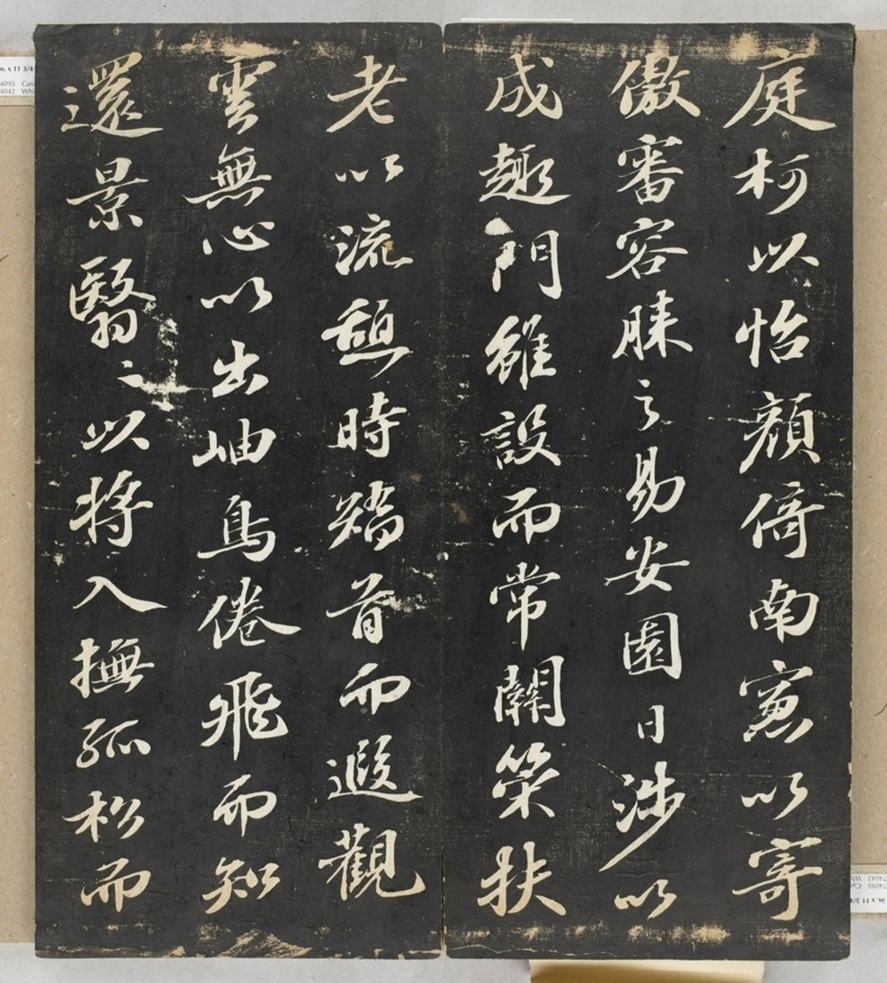 庭柯以怡顏倚南窓以寄
傲審容膝之易安園日涉以
成趣門雖設而常關策扶
老以流憩時矯首而遐觀
雲無心以出岫鳥倦飛而知
還景翳〻以將入撫孤松而
n. x 11 3/4
4095 Can
4042 Whi